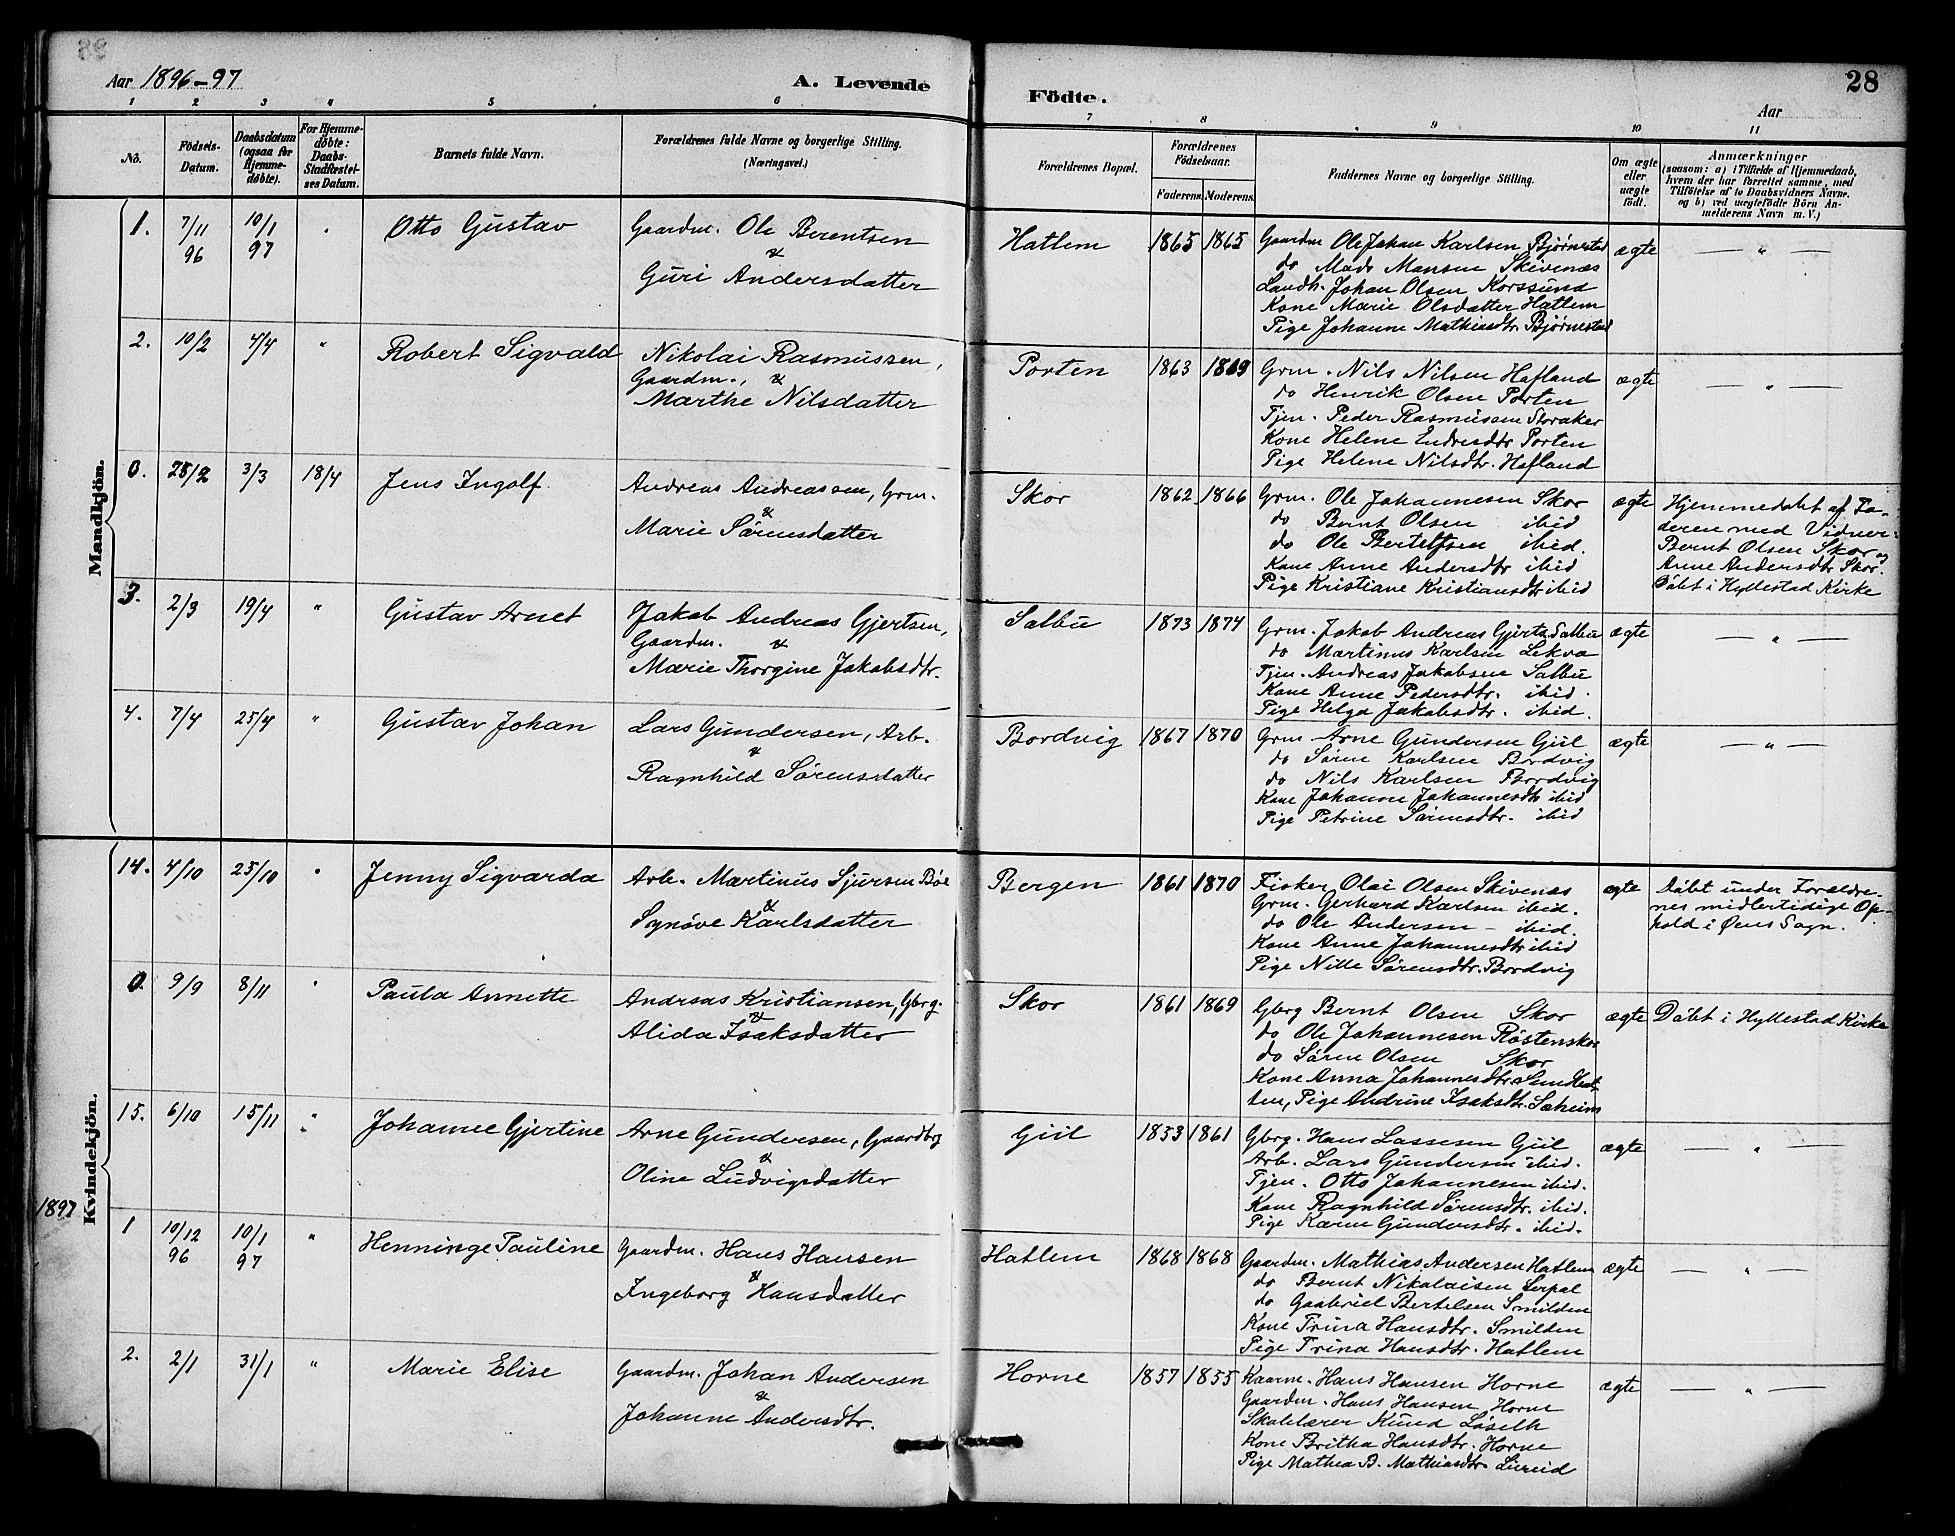 Aar 1896-97
A. Levende
Fødte.
Aar
28
1 2 3 4 5 6 7 8 9 10 11
No.
Fødsels-Datum.
Daabsdatum (ogsaa for Hjemme-døbte).
For Hjemme-døbte: Daabs-Stadfæstel-ses Datum.
Barnets fulde Navn.
Forældrenes fulde Navne og borgerlige Stilling. (Næringsvei.)
Forældrenes Bopæl.
Forældrenes Fødselsaar.
Faderens. Moderens.
Faddernes Navne og borgerlige Stilling.
Om ægte eller uægte født.
Anmærkninger
(saasom: a) i Tilfælde af Hjemmedaab,
hvem der har forrettet samme, med
Tilføielse af to Daabsvidners Navne.
og b) ved uægtefødte Børn An-
melderens Navn m. V.)
Mandkjön.
1. 7/11 96 10/1 97 " Otto Gustav
Gaardm. Ole Berentsen
&
Guri Andersdatter
Hatlem 1865 1865
Gaardm Ole Johan Karlsen Bjørnestad
do Mads Monsen Skivenæs
Landh. Johan Olsen Korssund
Kone Marie Olsdatter Hatlem
Pige Johanne Mathiasdtr. Bjørnestad
ægte — " —
2. 10/2 4/4 " Robert Sigvald
Nikolai Rasmussen,
Gaardm., &
Marthe Nilsdatter
Porten 1863 1869
Grm. Nils Nilsen Hafland
do Henrik Olsen Porten
Tjen. Peder Rasmussen Storaker
Kone Helene Endresdtr Porten
Pige Helene Nilsdtr. Hafland
ægte — " —
0. 28/2 3/3 18/4 Jens Ingolf.
Andreas Andreassen, Grm.
&
Marie Sørensdatter
Skor 1862 1866
Grm. Ole Johannesen Skor
do Bernt Olsen ibid
do Ole Bertelsen ibid.
Kone Anne Andersdtr ibid
Pige Kristiane Kristiansdtr ibid
ægte
Hjemmedøbt af Fa-
deren med Vidner:
Bernt Olsen Skor og
Anne Andersdtr Skor.
Døbt i Hyllestad Kirke
3. 2/3 19/4 " Gustav Arnet
Jakob Andreas Gjertsen,
Gaardm. &
Marie Thorgine Jakobsdtr.
Salbu 1873 1874
Grm. Jakob Andreas Gjerts. Salbu
do Martinus Karlsen Lekva
Tjen. Andreas Jakobsen Salbu
Kone Anne Pedersdtr. ibid.
Pige Helga Jakobsdtr. ibid.
ægte — " —
4. 7/4 25/4 " Gustav Johan
Lars Gundersen, Arb.
&
Ragnhild Sørensdatter
Bordvig 1867 1870
Grm Arne Gundersen Giil
do Søren Karlsen Bordvig
do Nils Karlsen Bordvig
Kone Johanne Johannesdtr ibid
Pige Petrine Sørensdtr. ibid
ægte — " —
Kvindekjön.
14. 4/10 25/10 " Jenny Sigvarda
Arb. Martinus Sjursen Bøe
&
Synøve Karlsdatter
Bergen 1861 1870
Fisker Olai Olsen Skivenæs
Grm. Gerhard Karlsen ibid.
do Ole Andersen - ibid.
Kone Anne Johannesdtr ibid
Pige Nille Sørensdtr. Bordvig
ægte
Døbt under Foreldre-
nes midlertidige Op-
hold i Øens Sogn.
0. 9/9 8/11 " Paula Annette
Andreas Kristiansen, Gbrg.
&
Alida Isaksdatter
Skor 1861 1869
Gbrg Bernt Olsen Skor
do Ole Johannesen Røstenskor
do Søren Olsen Skor
Kone Anna Johannesdtr.
Pige Andrine Isaksdtr. Sæheim
ægte Døbt i Hyllestad Kirke
15. 6/10 15/11 " Johanne Gjertine
Arne Gundersen, Gaardbrg
&
Oline Ludvigsdatter
Giil 1853 1861
Gbrg. Hans Lassesen Giil
Arb. Lars Gundersen ibid.
Tjen. Otto Johannesen ibid.
Kone Ragnhild Sørensdtr. ibid.
Pige Karen Gundersdtr. ibid.
ægte — " —
1897
1 10/12 96 10/1 97 " Henninge Pauline
Gaardm. Hans Hansen
&
Ingeborg Hansdatter
Hatlem 1868 1868
Gaardm. Mathias Andersen Hatlem
do Bernt Nikolaisen Serpal
do Gaabriel Bertelsen Smilden
Kone Trina Hansdtr. Smilden
Pige Trina Hansdtr. Hatlem
ægte — " —
2. 2/1 31/1 " Marie Elise
Gaardm. Johan Andersen
&
Johanne Andersdtr.
Horne 1857 1855
Kaarm. Hans Hansen Horne
Gaardm. Hans Hansen Horne
Skolelærer Knud Løseth
Kone Britha Hansdtr. Horne
Pige Mathea B. Mathiasdtr
ægte — " —